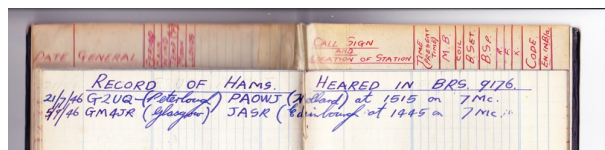 DATE GENERAL CALL SIGN AND LOCATION OF STATION TIME (PRESENT TIME) M.B. COIL B.SET. B.S.P. R. F. X. CODE EN.INDIA.
RECORD OF HAMS. HEARED IN BRS. 9176.
21/7/46 G2UQ - (Peterborough) PAOWJ (Holland) at 1515 on 7Mc.
/46 GM4JR (Glasgow) JASR (Edinbourgh at 1445 on 7Mc.